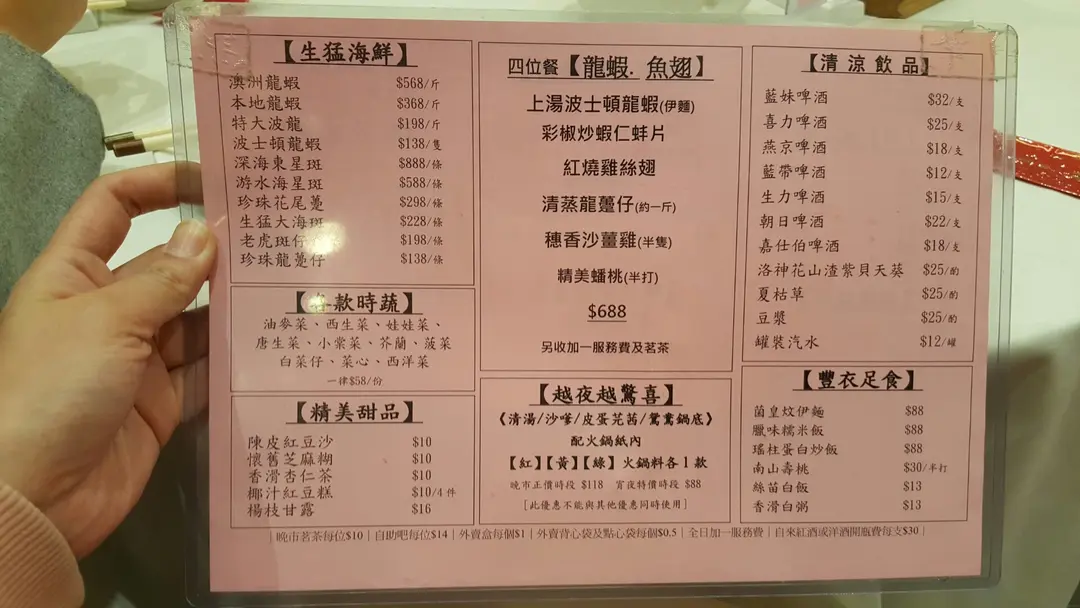 【生猛海鮮】
澳洲龍蝦 $568/斤
本地龍蝦 $368/斤
特大波龍 $198/斤
波士頓龍蝦 $138/隻
深海東星斑 $888/條
游水海星斑 $588/條
珍珠花尾躉 $298/條
生猛大海斑 $228/條
老虎斑仔 $198/條
珍珠龍躉仔 $138/條
【各款時蔬】
油麥菜、西生菜、娃娃菜、
唐生菜、小棠菜、芥蘭、菠菜
白菜仔、菜心、西洋菜
一律$58/份
【精美甜品】
陳皮紅豆沙 $10
懷舊芝麻糊 $10
香滑杏仁茶 $10
椰汁紅豆糕 $10/4件
楊枝甘露 $16
四位餐【龍蝦.魚翅】
上湯波士頓龍蝦(伊麵)
彩椒炒蝦仁蚌片
紅燒雞絲翅
清蒸龍躉仔(約一斤)
穗香沙薑雞(半隻)
精美蟠桃(半打)
$688
另收加一服務費及茗茶
【越夜越驚喜】
《清湯/沙嗲/皮蛋芫茜/鴛鴦鍋底》
配火鍋紙內
【紅】【黃】【綠】火鍋料各1款
晚市正價時段 $118 宵夜特價時段 $88
[此優惠不能與其他優惠同時使用]
【清涼飲品】
藍妹啤酒 $32/支
喜力啤酒 $25/支
燕京啤酒 $18/支
藍帶啤酒 $12/支
生力啤酒 $15/支
朝日啤酒 $22/支
嘉仕伯啤酒 $18/支
洛神花山渣紫貝天葵 $25/酌
夏枯草 $25/酌
豆漿 $25/酌
罐裝汽水 $12/罐
【豐衣足食】
菌皇炆伊麵 $88
臘味糯米飯 $88
瑤柱蛋白炒飯 $88
南山壽桃 $30/半打
絲苗白飯 $13
香滑白粥 $13
|晚市茗茶每位$10|自助吧每位$14|外賣盒每個$1|外賣背心袋及點心袋每個$0.5|全日加一服務費|自來紅酒或洋酒開瓶費每支$30|